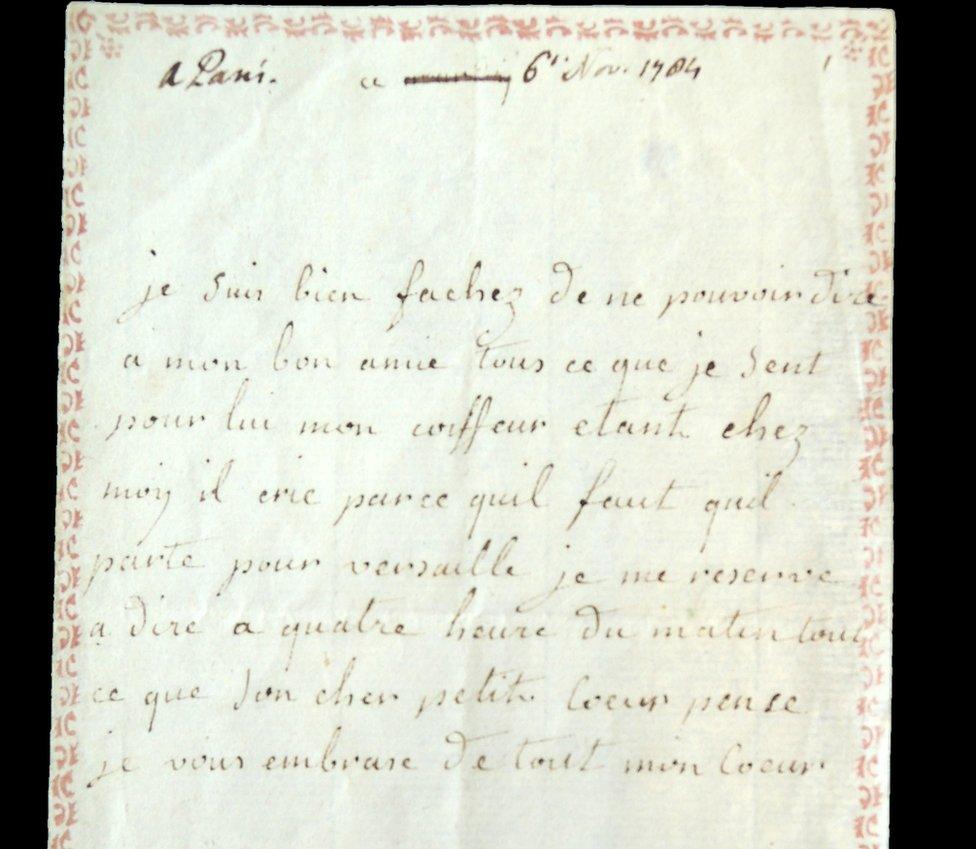 a Paris. ce 6 Nov. 1784
je suis bien fachez de ne pouvoir dire
a mon bon amie tous ce que je sent
pour lui mon coiffeur etant chez
moy il crie parce quil faut quil
parte pour versaille je me reserve
a dire a quatre heure du matin tout
ce que son cher petit Coeur pense
je vous embrase de tout mon Coeur